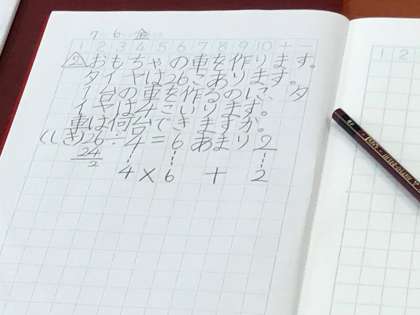 7 6 金
1 2 3 4 5 6 7 8 9 10 + −
② おもちゃの車を作ります。
タイヤは26こあります。
1台の車を作るのに、タ
イヤは4こいります。
車は何台できますか。
(しき)26÷4=6あまり2
24
2
4×6 + 2
1 2